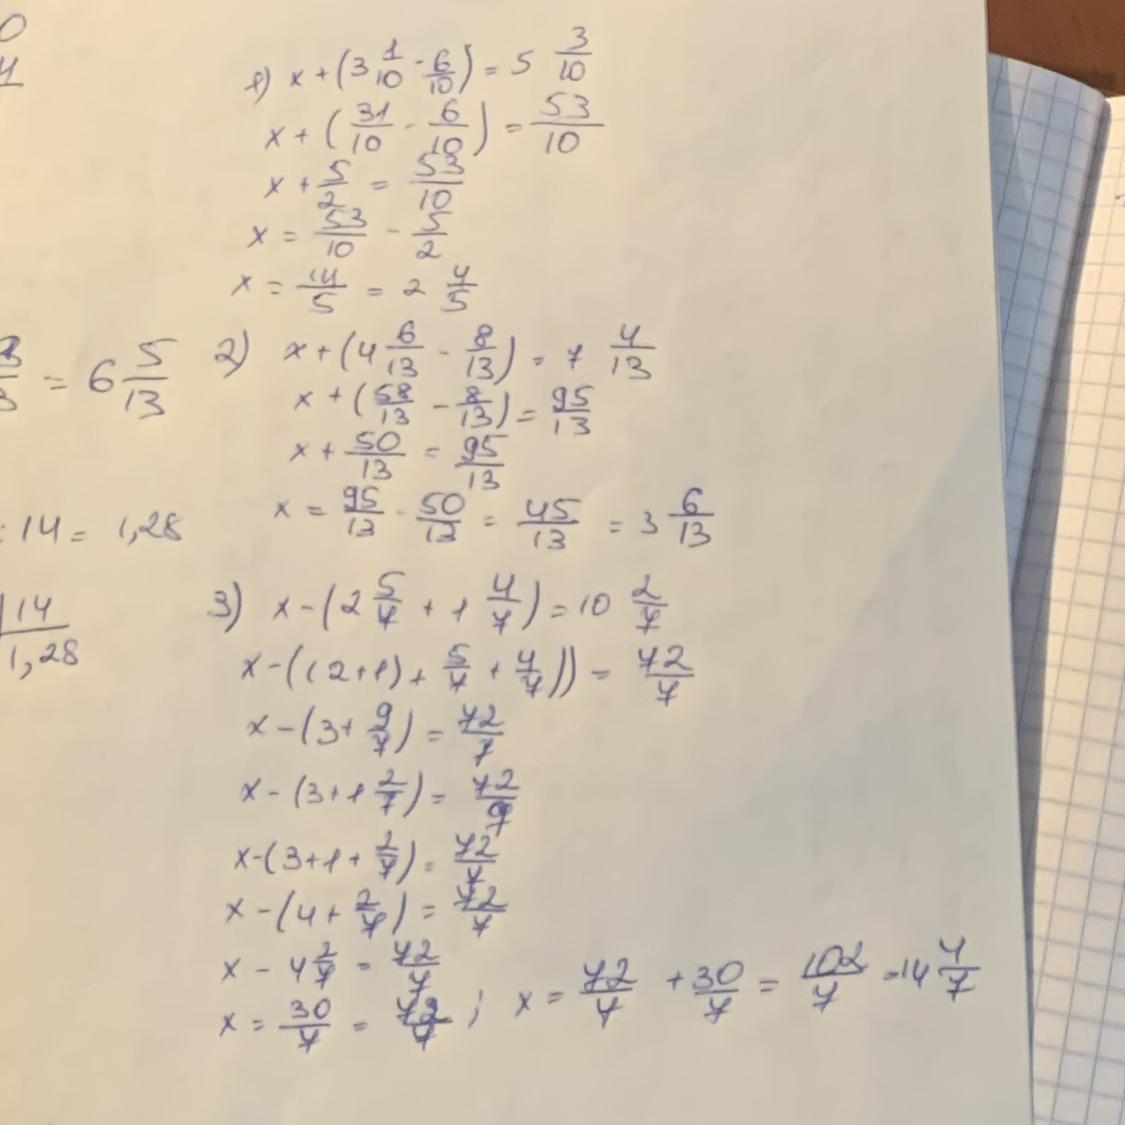 0
4
1) x + (3 1/10 - 6/10) = 5 3/10
x + (31/10 - 6/10) = 53/10
x + 5/2 = 53/10
x = 53/10 - 5/2
x = 14/5 = 2 4/5
= 6 5/13
2) x + (4 6/13 - 8/13) = 7 4/13
x + (58/13 - 8/13) = 95/13
x + 50/13 = 95/13
x = 95/13 - 50/13 = 45/13 = 3 6/13
: 14 = 1,28
14
1,28
3) x - (2 5/7 + 1 4/7) = 10 2/7
x - ((2 + 1) + 5/7 + 4/7)) = 72/7
x - (3 + 9/7) = 72/7
x - (3 + 1 2/7) = 72/7
x - (3 + 1 + 2/7) = 72/7
x - (4 + 2/7) = 72/7
x - 4 2/7 = 72/7
x = 30/7 = 72/7 ; x = 72/7 + 30/7 = 102/7 = 14 4/7